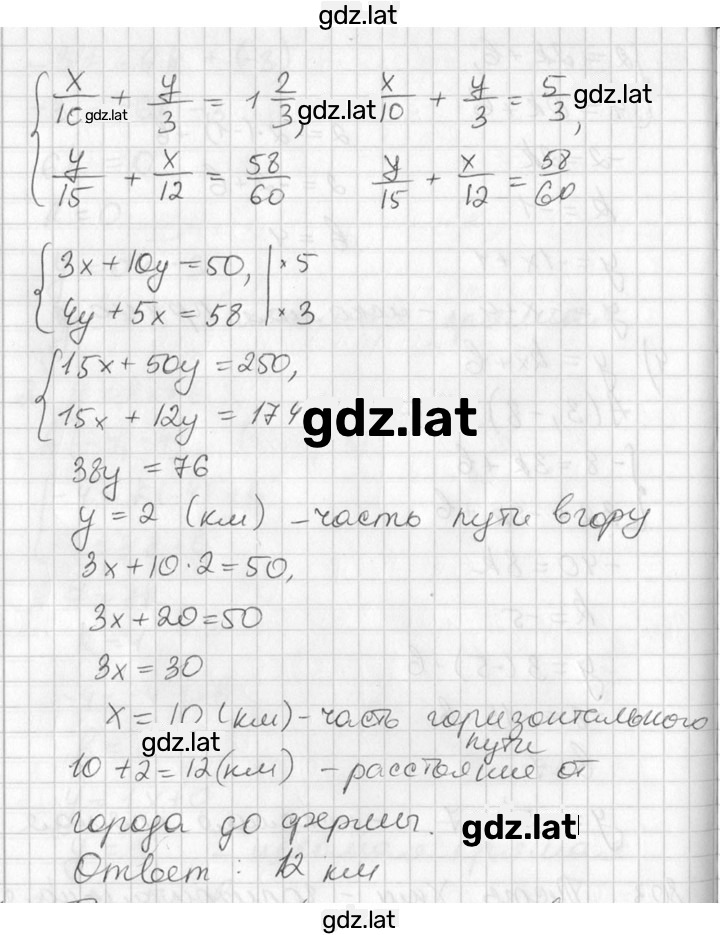 gdz.lat
x/10 + y/3 = 1 2/3, x/10 + y/3 = 5/3,
gdz.lat gdz.lat gdz.lat
y/15 + x/12 = 58/60 y/15 + x/12 = 58/60
3x + 10y = 50, | × 5
4y + 5x = 58 | × 3
15x + 50y = 250,
15x + 12y = 174
gdz.lat
38y = 76
y = 2 (км) – часть пути в гору
3x + 10 · 2 = 50,
3x + 20 = 50
3x = 30
x = 10 (км) – часть горизонтального
пути
gdz.lat
10 + 2 = 12 (км) – расстояние от
города до фермы.
gdz.lat
Ответ : 12 км
gdz.lat